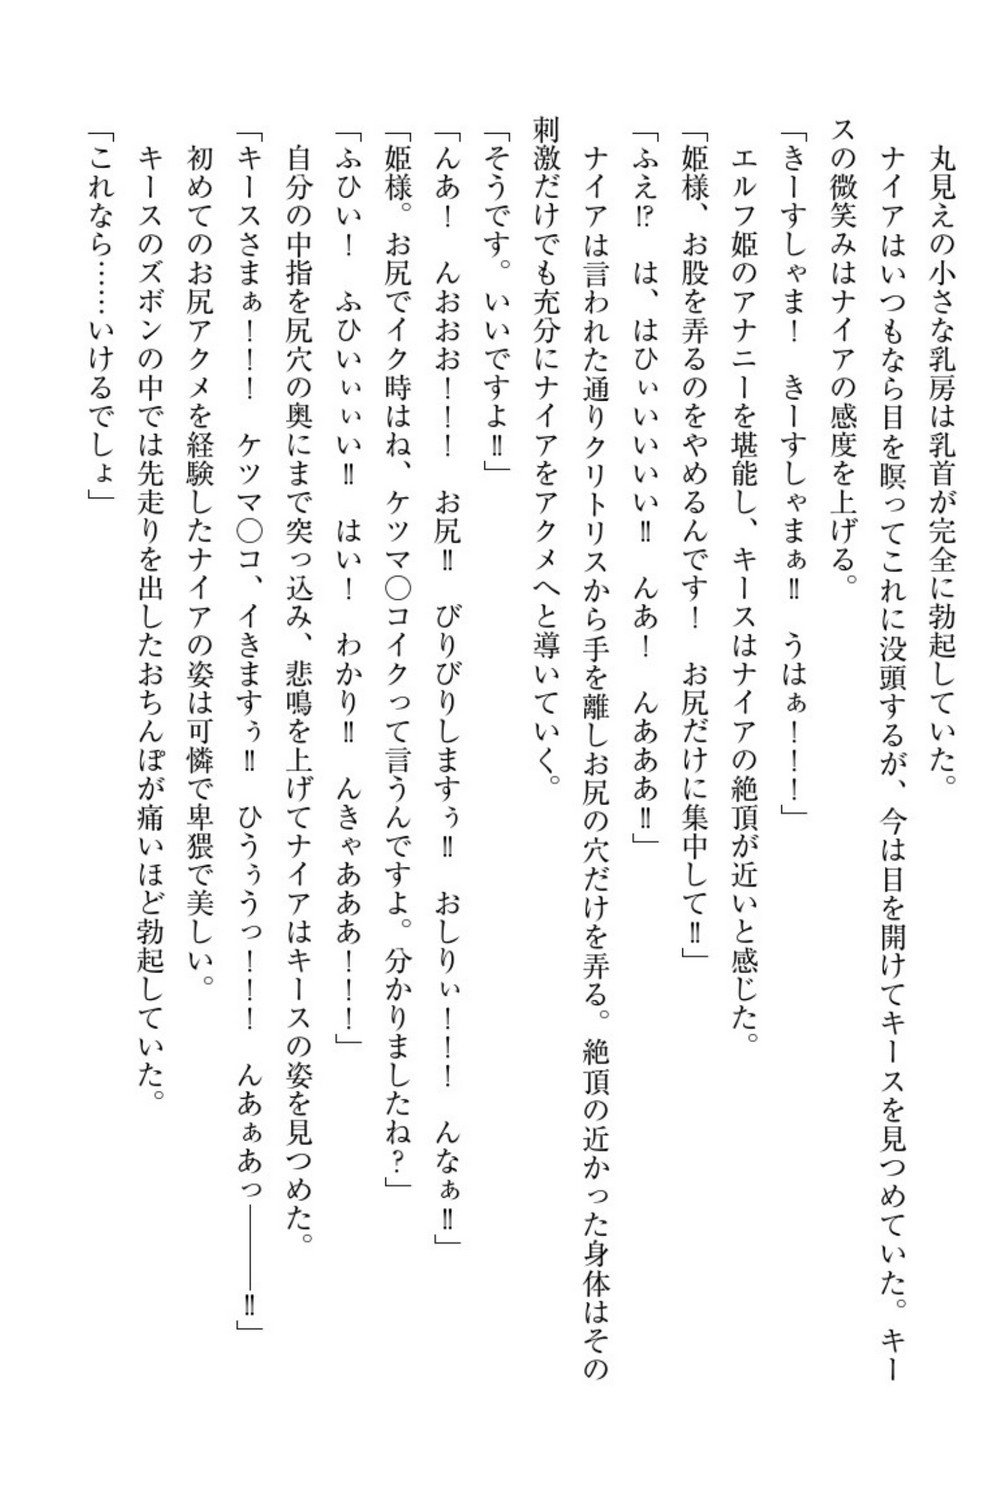 丸見えの小さな乳房は乳首が完全に勃起していた。
ナイアはいつもなら目を瞑ってこれに没頭するが、今は目を開けてキースを見つめていた。キー
スの微笑みはナイアの感度を上げる。
「きーすしゃま！　きーすしゃまぁ‼　うはぁ！！！」
エルフ姫のアナニーを堪能し、キースはナイアの絶頂が近いと感じた。
「姫様、お股を弄るのをやめるんです！　お尻だけに集中して‼」
「ふえ⁉　は、はひぃいいいい‼　んあ！　んあああ‼」
ナイアは言われた通りクリトリスから手を離しお尻の穴だけを弄る。絶頂の近かった身体はその
刺激だけでも充分にナイアをアクメへと導いていく。
「そうです。いいですよ‼」
「んあ！　んおおお！！！　お尻‼　びりびりしますぅ‼　おしりぃ！！！　んなぁ‼」
「姫様。お尻でイク時はね、ケツマ〇コイクって言うんですよ。分かりましたね？」
「ふひい！　ふひいぃぃい‼　はい！　わかり‼　んきゃあああ！！！」
自分の中指を尻穴の奥にまで突っ込み、悲鳴を上げてナイアはキースの姿を見つめた。
「キースさまぁ！！！　ケツマ〇コ、イきますぅ‼　ひうぅうっ！！！　んあぁあっ―――‼」
初めてのお尻アクメを経験したナイアの姿は可憐で卑猥で美しい。
キースのズボンの中では先走りを出したおちんぽが痛いほど勃起していた。
「これなら……いけるでしょ」